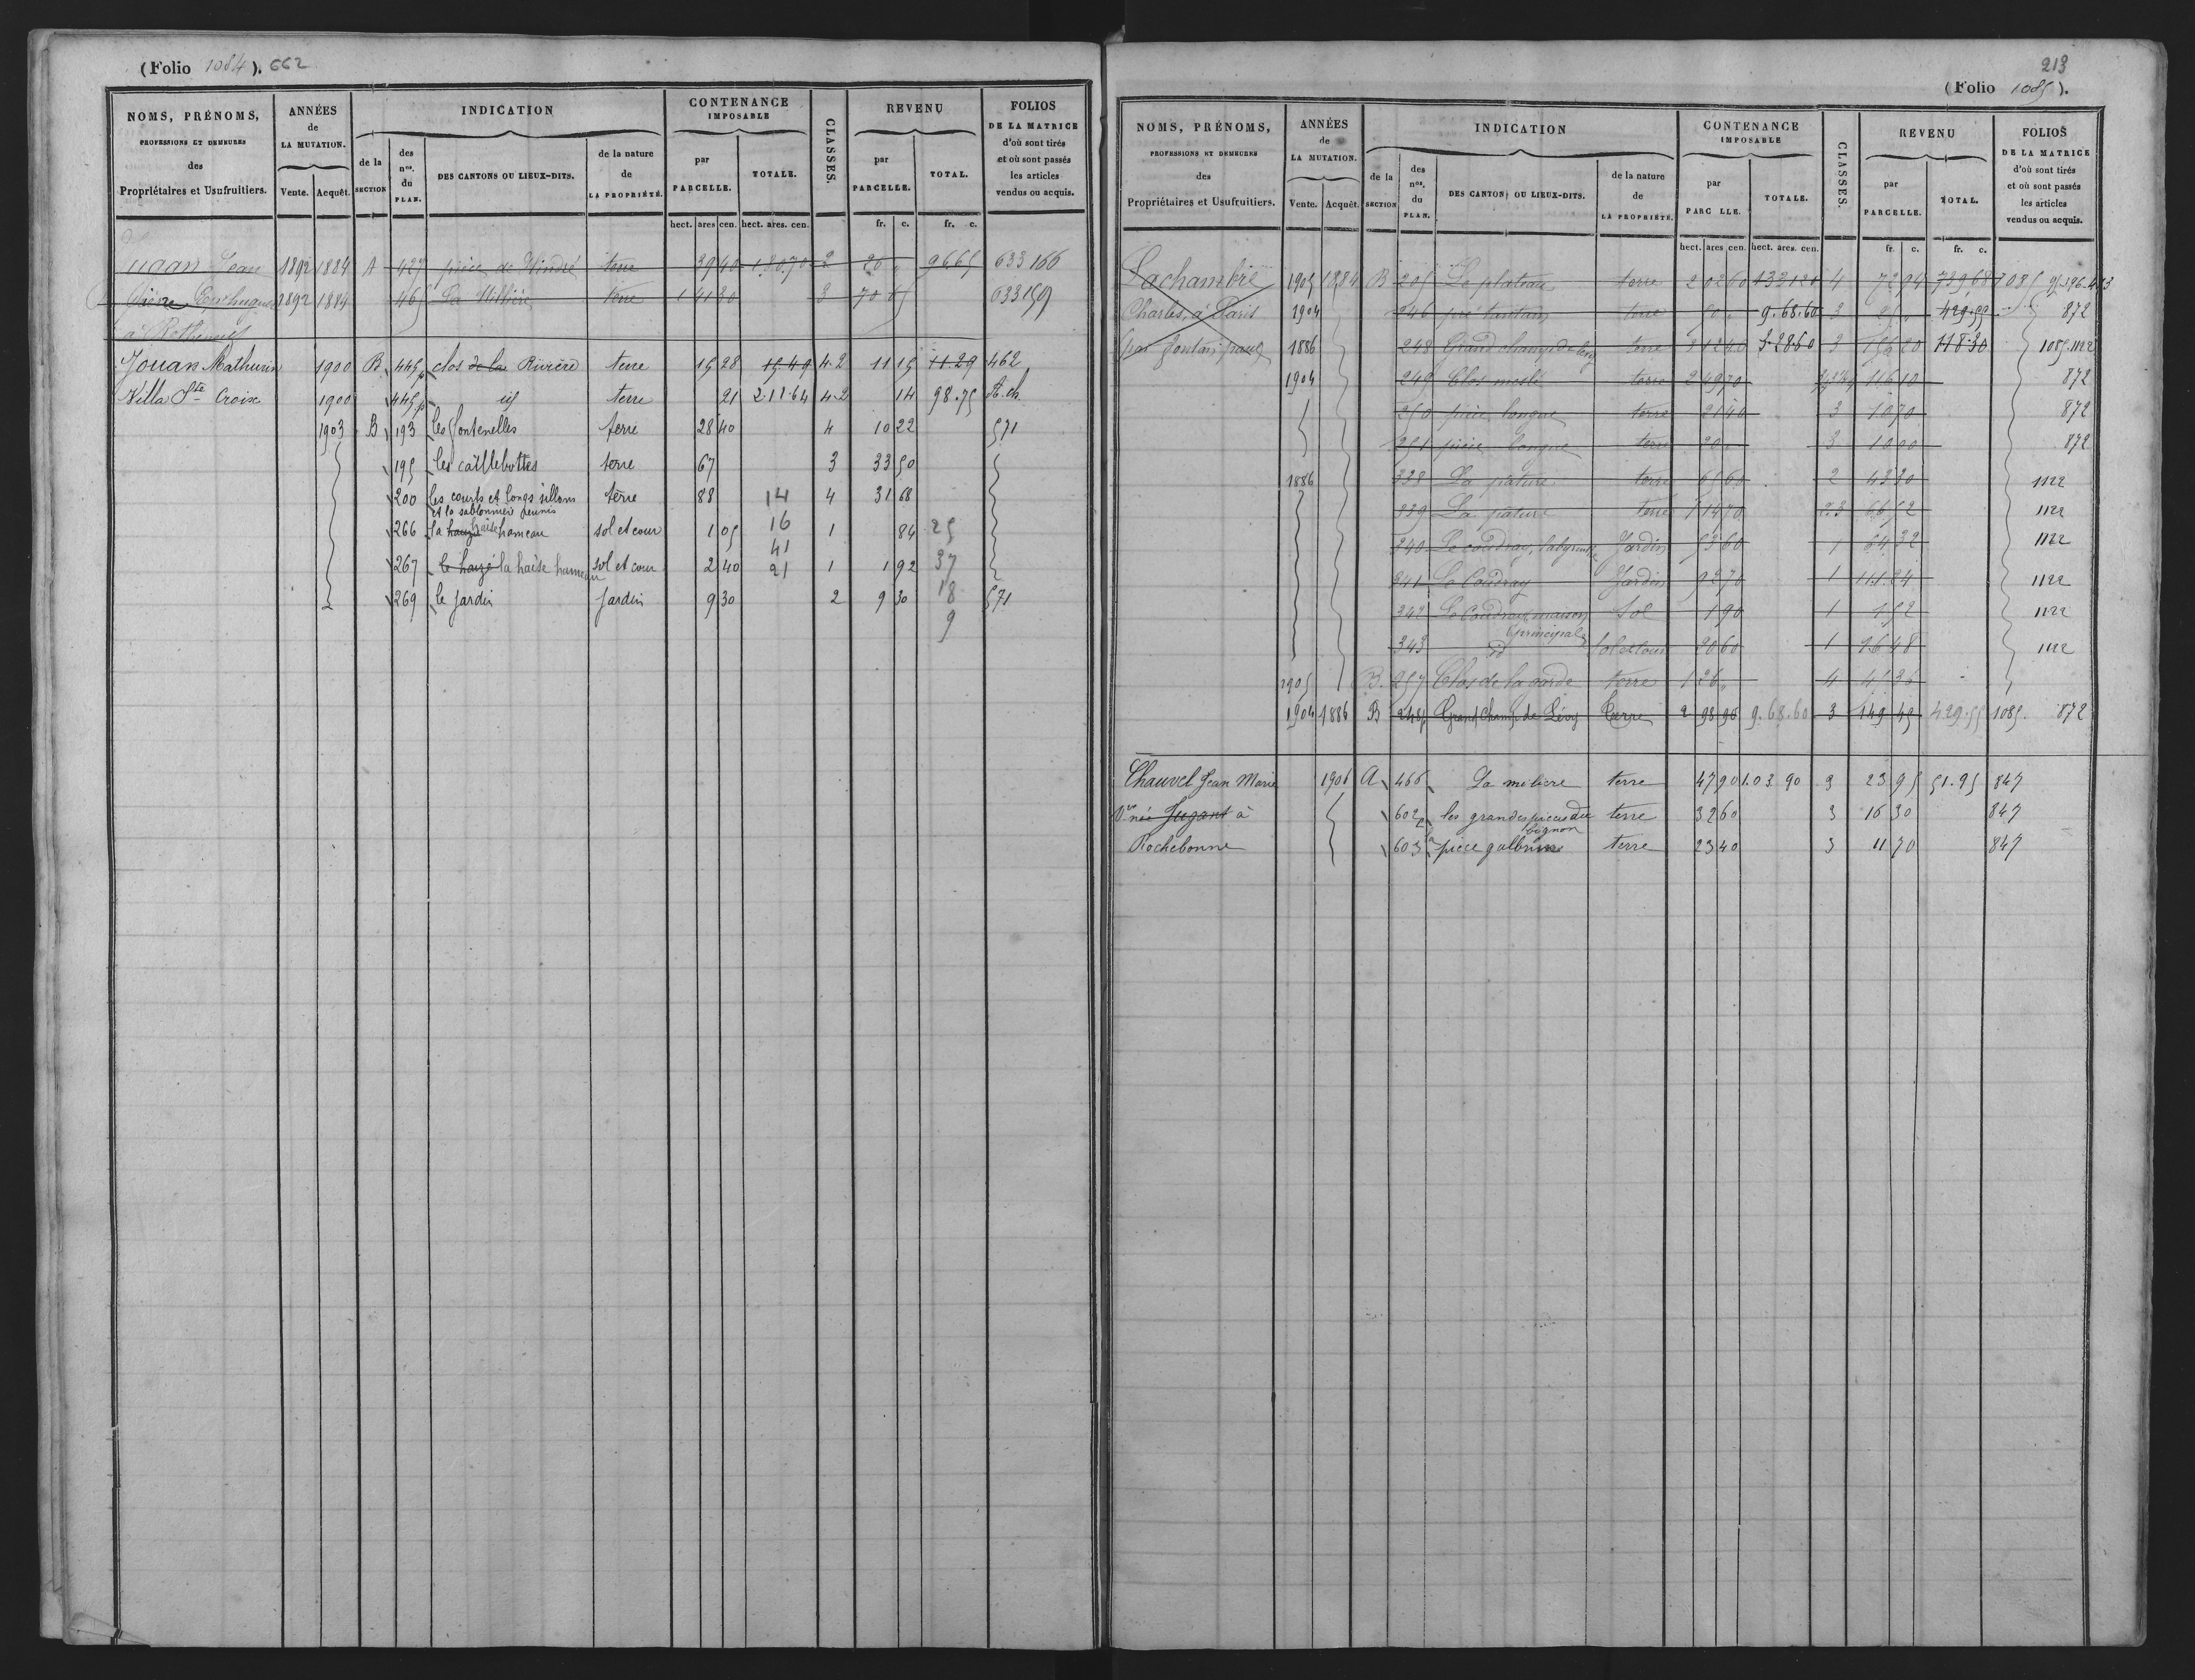 (Folio 1084). 662
NOMS, PRÉNOMS, PROFESSIONS ET DEMEURES des Propriétaires et Usufruitiers.
ANNÉES de LA MUTATION. Vente. Acquêt.
INDICATION de la SECTION des nos. du PLAN. DES CANTONS OU LIEUX-DITS. de la nature de LA PROPRIÉTÉ.
CONTENANCE IMPOSABLE par PARCELLE. TOTALE. hect. ares cen. hect. ares. cen.
CLASSES.
REVENU par PARCELLE. TOTAL. fr. c. fr. c.
FOLIOS DE LA MATRICE d'où sont tirés et où sont passés les articles vendus ou acquis.
Jean 1892 1884 A 427 pièce de terre 39 40 1.80.70 2 20 96.65 633 166
1892 1884 465 La Millière terre 1 41 30 3 70 65 633 159
à Rotheneuf
Jouan Mathurin 1900 B 445p clos de la Rivière terre 15 28 15.49 4.2 11 15 11.29 462
Villa Ste Croix 1900 445p id terre 21 2.11.64 4.2 14 98.75 R.ch
1903 B 193 les fontenelles terre 28 40 4 10 22 571
195 les caillebottes terre 67 3 33 50
200 les courts et longs sillons et la sablonnier réunis terre 88 14 4 31 68
266 la haize haise hameau sol et cour 1 05 16 1 84 25
41
267 le haizé la haise hameau sol et cour 2 40 21 1 1 92 37
269 le Jardin Jardin 9 30 2 9 30 18 571
9
213
(Folio 1085).
NOMS, PRÉNOMS, PROFESSIONS ET DEMEURES des Propriétaires et Usufruitiers.
ANNÉES de LA MUTATION. Vente. Acquêt.
INDICATION de la SECTION des nos. du PLAN. DES CANTONS OU LIEUX-DITS. de la nature de LA PROPRIÉTÉ.
CONTENANCE IMPOSABLE par PARCELLE. TOTALE. hect. ares cen. hect. ares. cen.
CLASSES.
REVENU par PARCELLE. TOTAL. fr. c. fr. c.
FOLIOS DE LA MATRICE d'où sont tirés et où sont passés les articles vendus ou acquis.
Lachambre 1905 1884 B 205 Le plateau terre 2 02 60 4 72 94 739,68 1085
Charles, à Paris 1904 246 pré terre 50 9.68.60 3 25 429.55 872
par 1886 248 Grand champ de Lévy terre 3 12 40 3.28.60 3 156 20 118.30 1085.1122
1904 249 Clos meslé terre 2 49 70 116 10 872
250 pièce longue terre 21 40 3 10 70 872
251 pièce longue terre 20 3 10 00 872
1886 338 La pature terre 65 60 2 43 30 1122
339 La pature terre 1 14 70 2.3 66 52 1122
340 Le coudray, labyrinthe Jardin 53 60 1 64 32 1122
341 Le Coudray Jardin 92 70 1 111 24 1122
342 Le Coudray maison principale Sol 1 90 1 1 52 1122
343 id Sol et cour 20 60 1 16 48 1122
1905 B 257 Clos de la garde terre 1 26 4 45 36
1904 1886 B 248p Grand Champ de Lévy Terre 2 98 90 9.68.60 3 149 45 429.55 1085. 872
Chauvel Jean Marie 1906 A 466 La miliere terre 47 90 1.03 90 3 23 95 51.95 847
Vve née Jugant à 602 les grandes pieces du bignon terre 32 60 3 16 30 847
Rochebonne 603 la piece galbrune terre 23 40 3 11 70 847